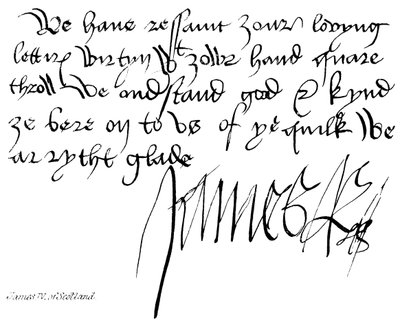 We have ressaut zour lovyng
letter wirtyn wt zour hand quare
throll We ondstand good & kynd
ze bere on to vs of ye quilk We
ar rytht glade
James R
James IV. of Scotland